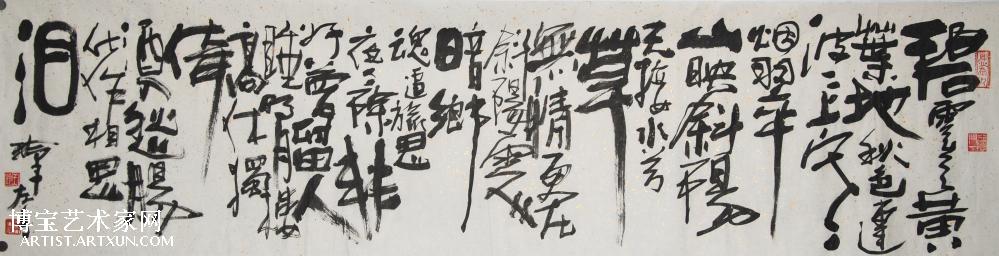 碧雲天黄
葉地秋色連
波々上寒
烟翠
山映斜陽
天接水芳
草
無情更在
斜陽外
暗鄉
魂追旅思
夜々除非
好夢留人
睡明月樓
高休獨
倚
酒入愁腸
化作相思
泪
博宝艺术家网
ARTIST.ARTXUN.COM